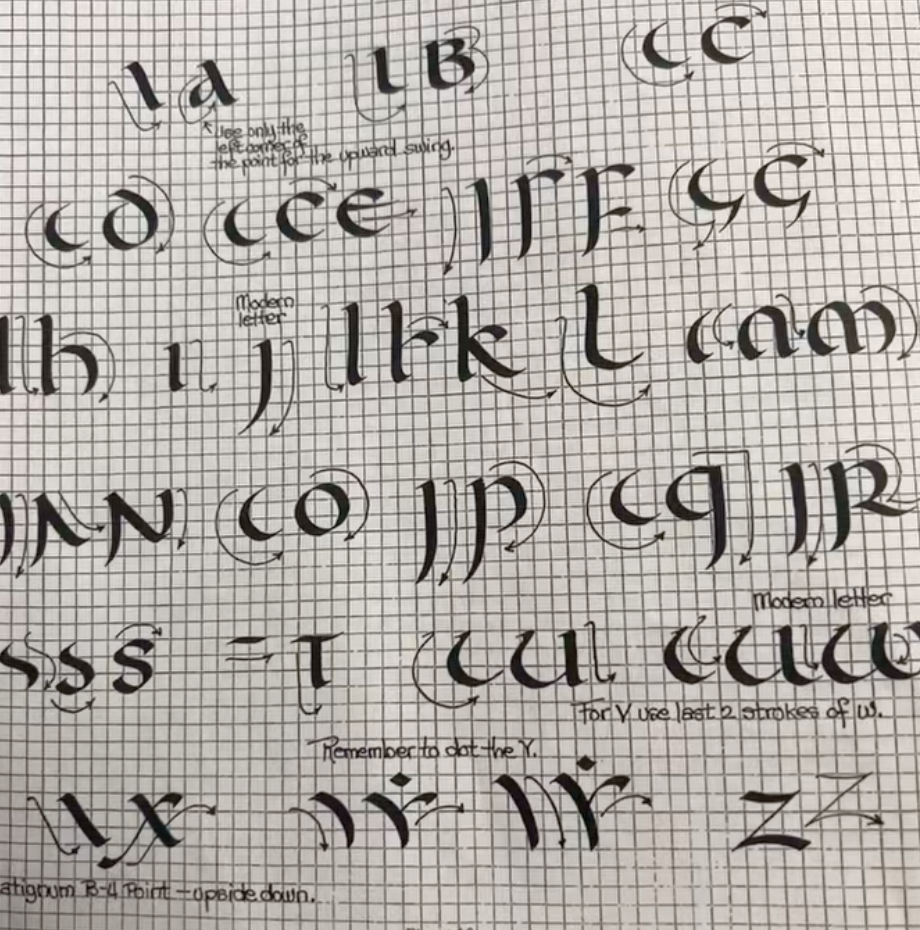 ı a ı B c c
Use only the
left corner of
the point for the upward swing.
c o c c e ı r F ç ç
Modern
letter
l h ı j l k k l c a m
ı ʌ N c o j p c q j R
s s s = τ c u c u w
Modern letter
For V use last 2 strokes of W.
Remember to dot the Y.
\ x ı ẏ ı ẏ z z
B-4 Point - upside down.